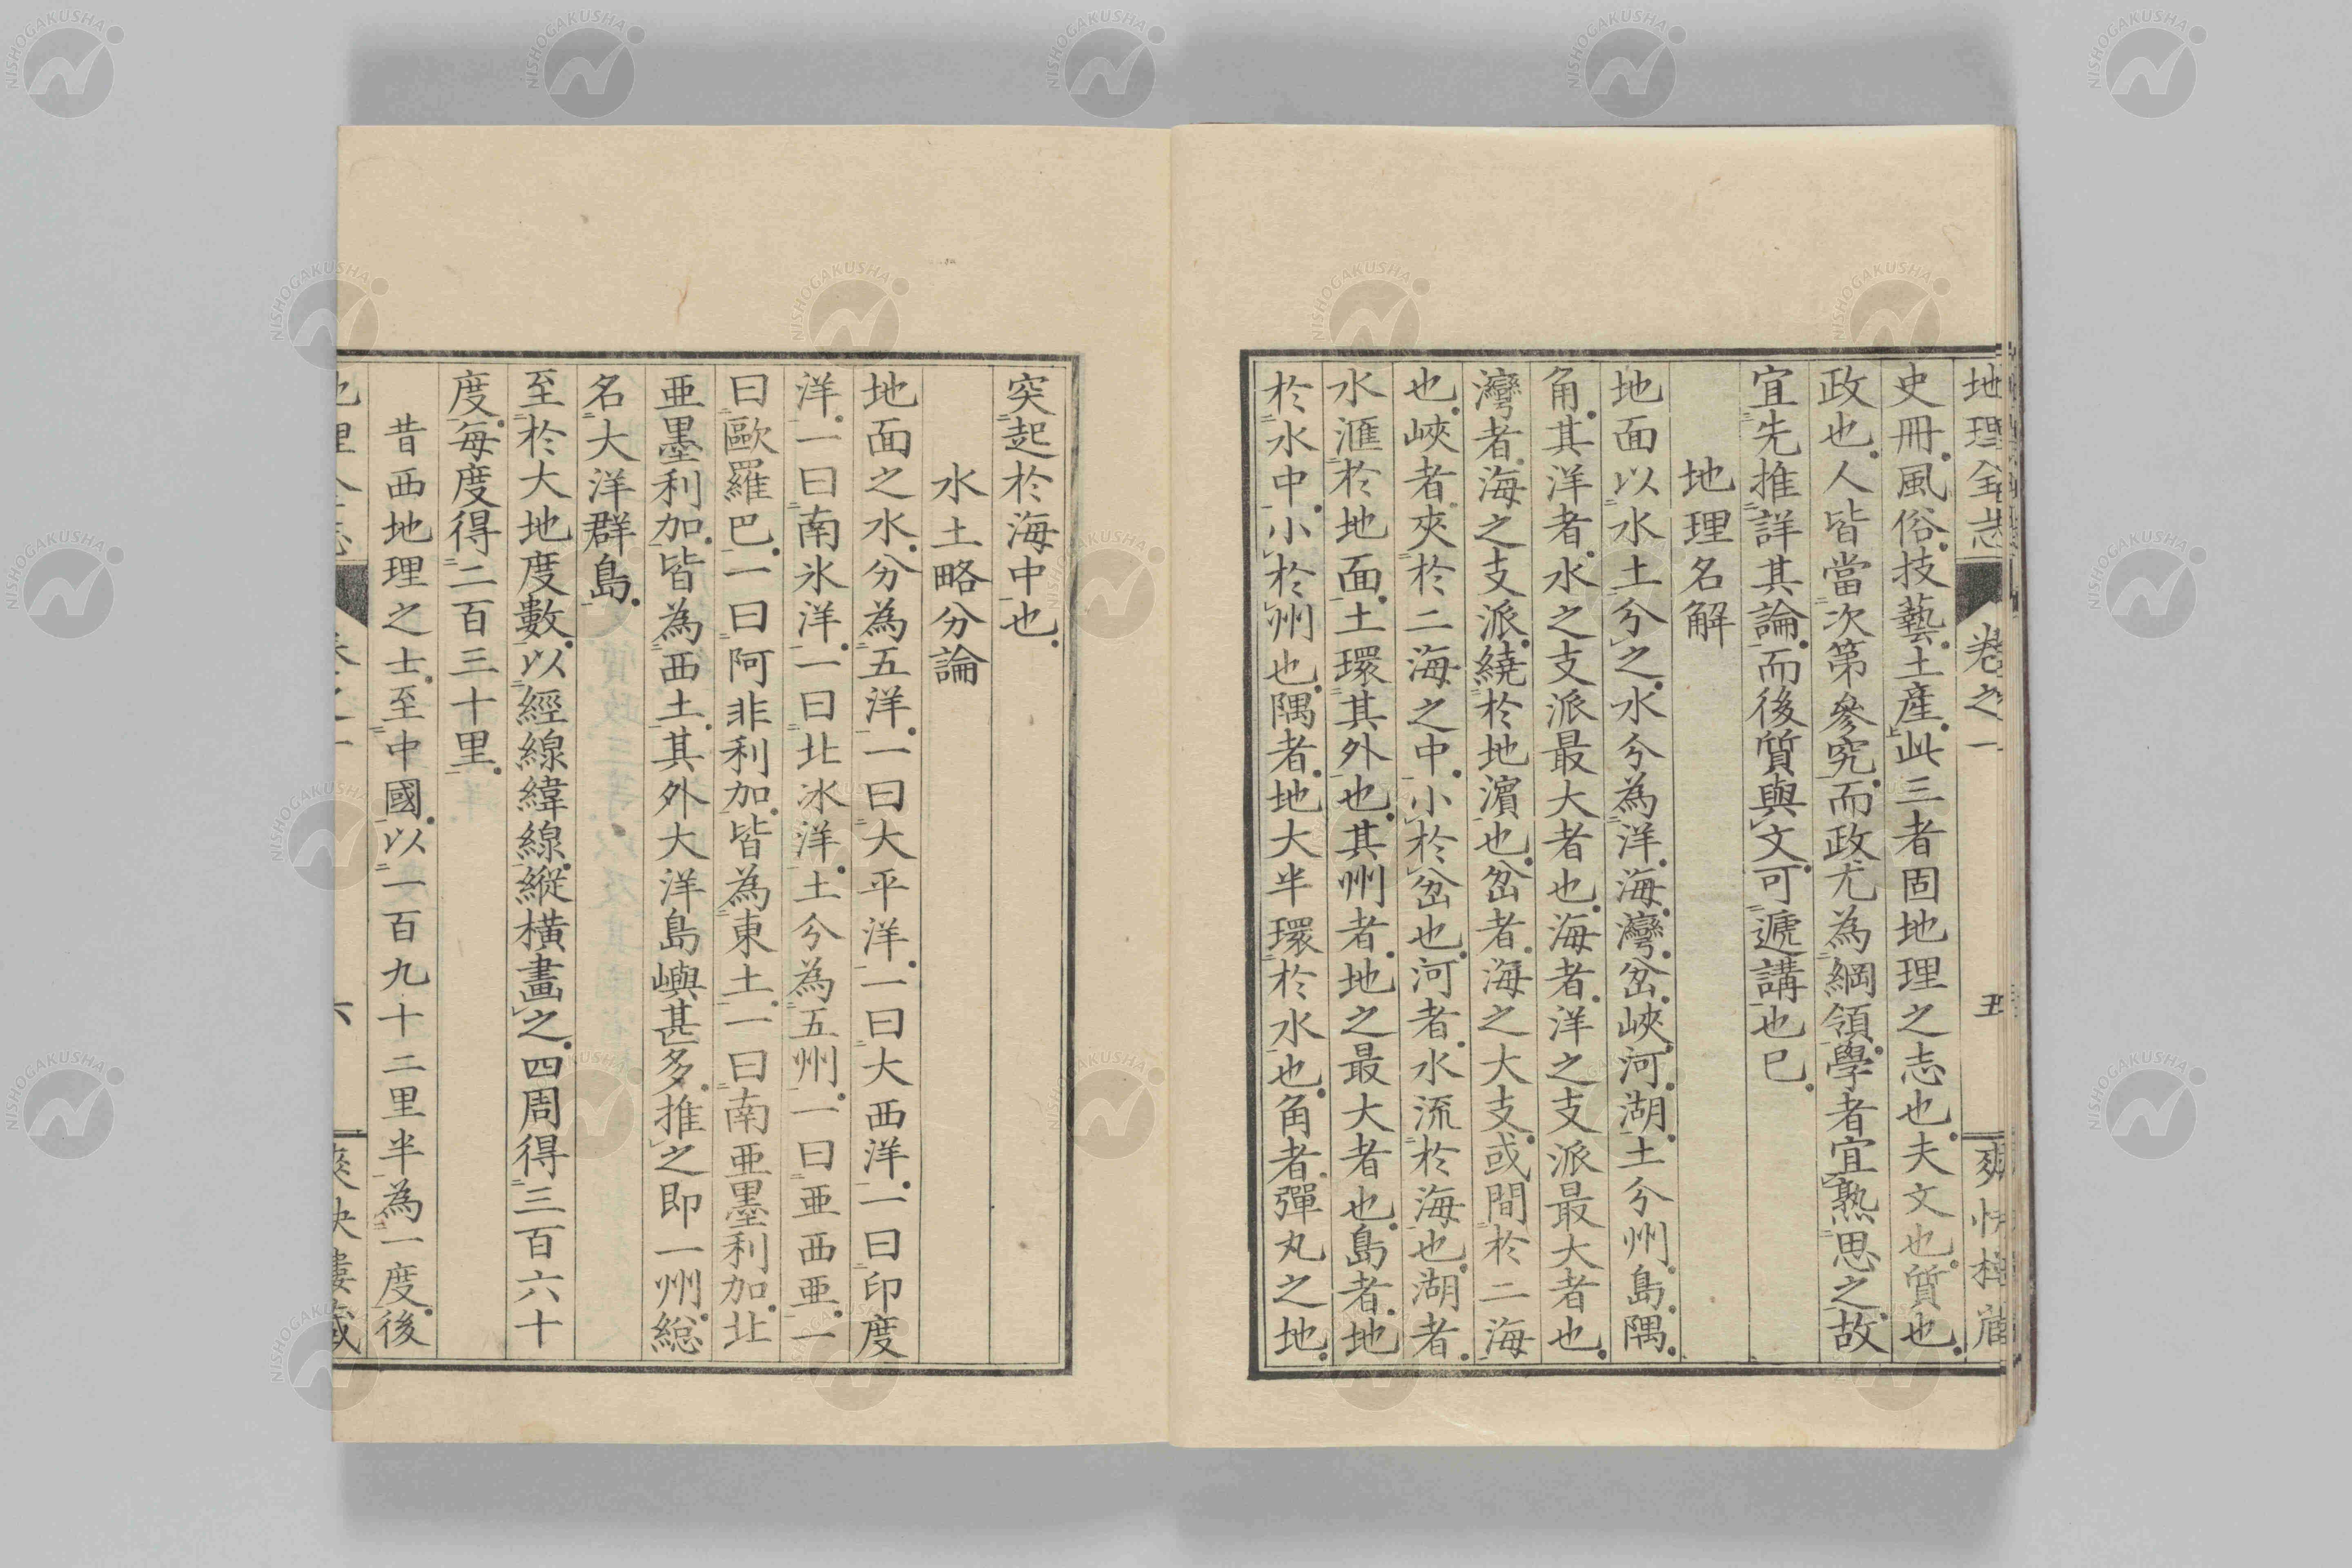 地理全志 卷之一 五
史冊。風俗。技藝。土產。此三者固地理之志也。夫文也。質也。
政也。人皆當次第參究。而政尤為綱領。學者宜熟思之。故
宜先推詳其論。而後質與文。可遞講也已。
地理名解
地面以水土分之。水分為洋。海。灣。岔。峽。河。湖。土分州。島。隅。
角。其洋者。水之支派最大者也。海者。洋之支派最大者也。
灣者。海之支派。繞於地濵也。岔者。海之大支。或間於二海
也。峽者。夾於二海之中。小於岔也。河者。水流於海也。湖者。
水滙於地面。土環其外也。其州者。地之最大者也。島者。地
於水中。小於州也。隅者。地大半環於水也。角者。彈丸之地。
突起於海中也。
水土略分論
地面之水。分為五洋。一曰大平洋。一曰大西洋。一曰印度
洋。一曰南氷洋。一曰北冰洋。土分為五州。一曰亜西亜。一
曰歐羅巴。一曰阿非利加。皆為東土。一曰南亜墨利加。北
亜墨利加。皆為西土。其外大洋島嶼甚多。推之即一州。総
名大洋群島。
至於大地度數。以經線緯線。縱橫畫之。四周得三百六十
度。每度得二百三十里。
昔西地理之士。至中國。以一百九十二里半為一度。後
六
NISHOGAKUSHA